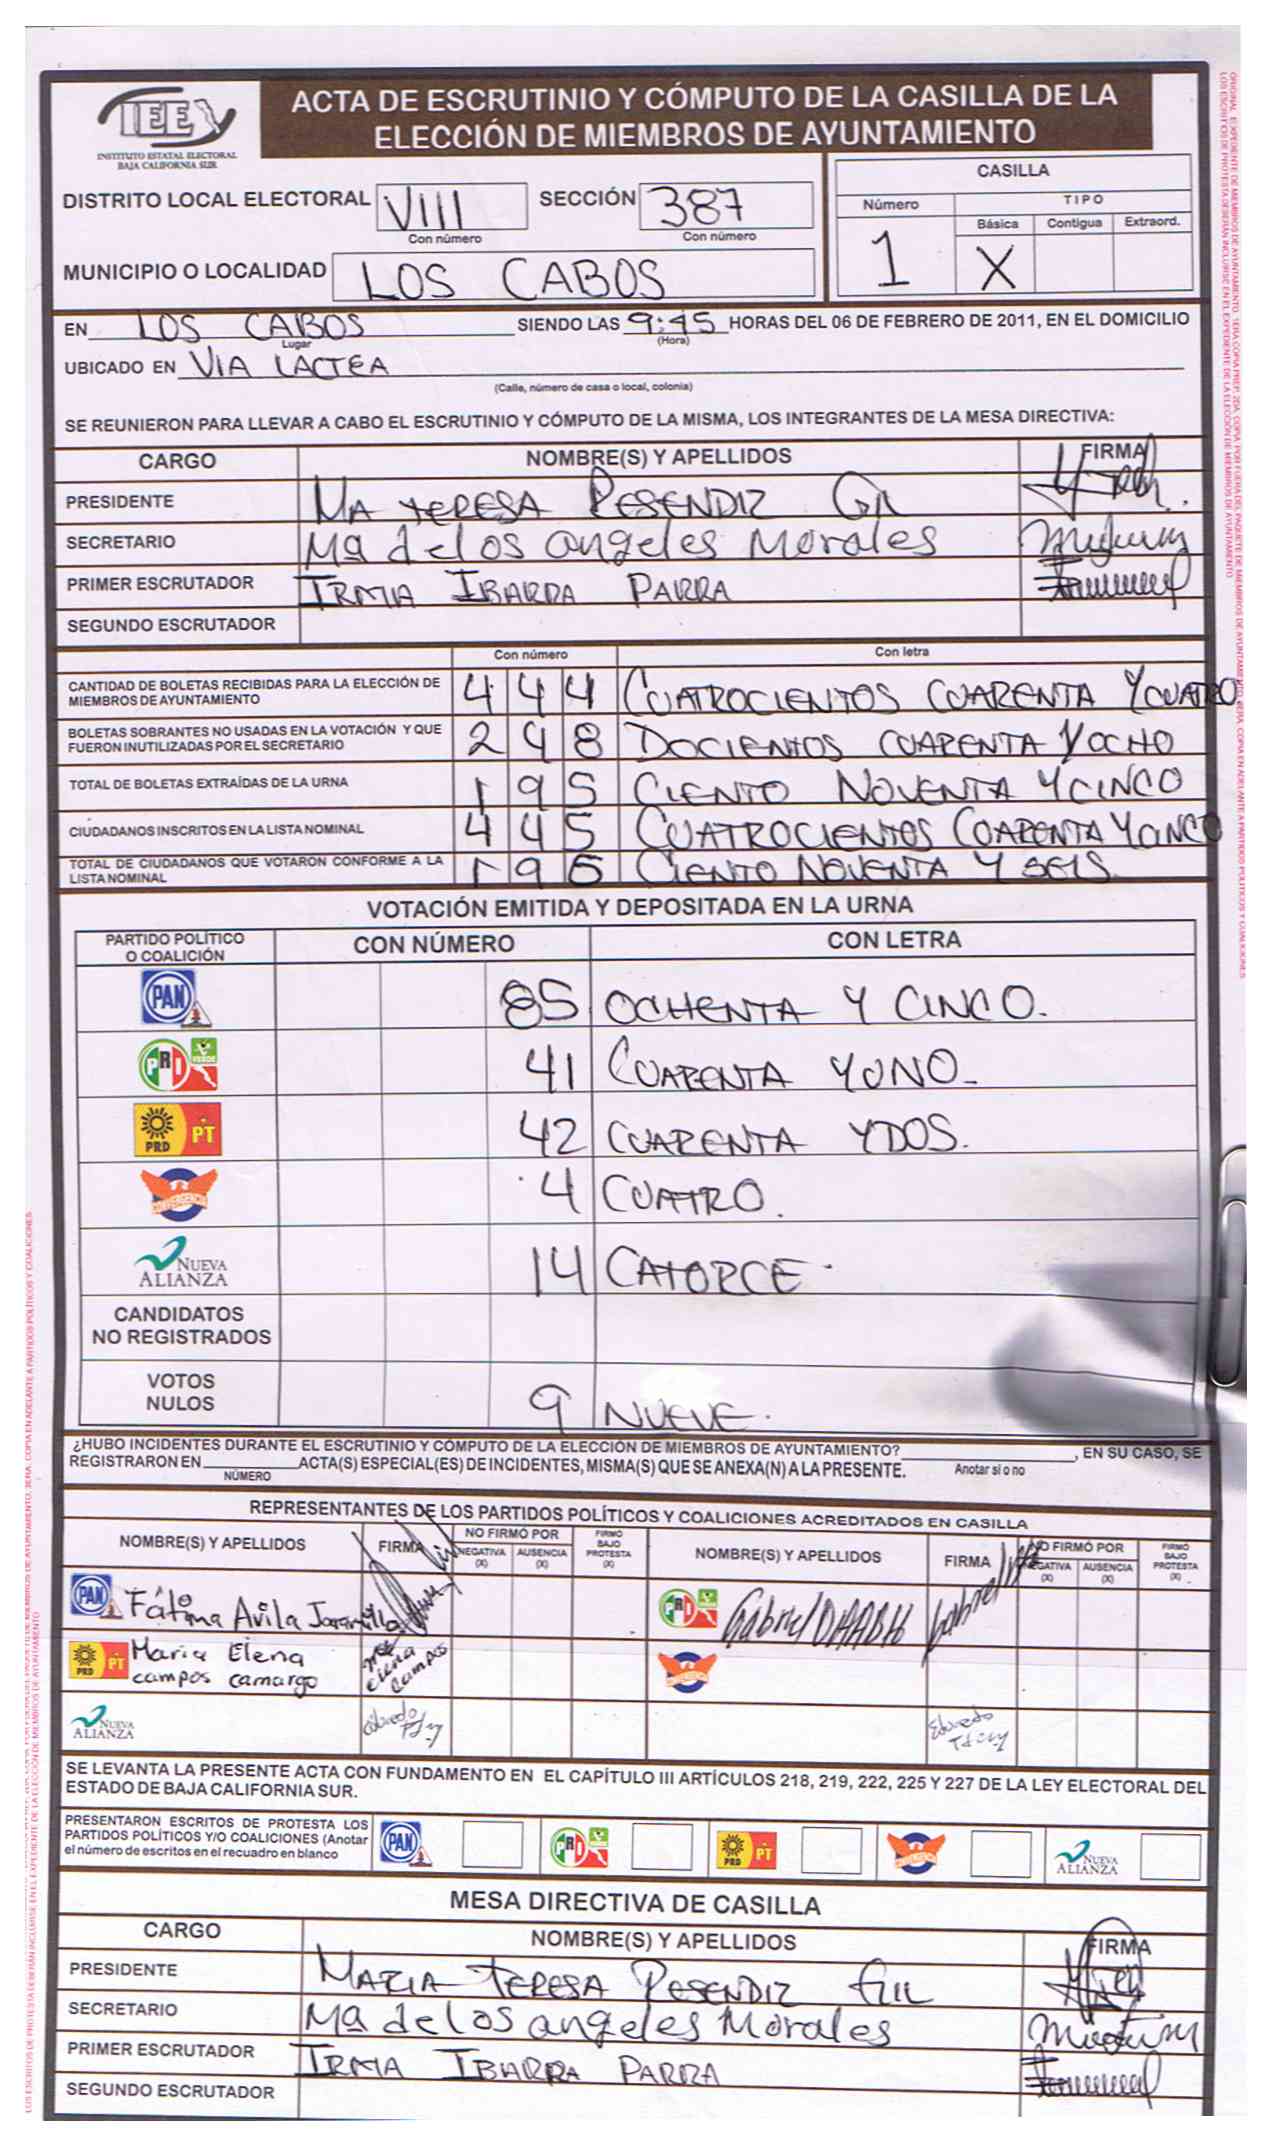 IEE
INSTITUTO ESTATAL ELECTORAL
BAJA CALIFORNIA SUR
ACTA DE ESCRUTINIO Y CÓMPUTO DE LA CASILLA DE LA
ELECCIÓN DE MIEMBROS DE AYUNTAMIENTO
DISTRITO LOCAL ELECTORAL VIII SECCIÓN 387
Con número Con número
MUNICIPIO O LOCALIDAD LOS CABOS
CASILLA
Número TIPO
Básica Contigua Extraord.
1 X
EN LOS CABOS SIENDO LAS 9:45 HORAS DEL 06 DE FEBRERO DE 2011, EN EL DOMICILIO
Lugar (Hora)
UBICADO EN VIA LACTEA
(Calle, número de casa o local, colonia)
SE REUNIERON PARA LLEVAR A CABO EL ESCRUTINIO Y CÓMPUTO DE LA MISMA, LOS INTEGRANTES DE LA MESA DIRECTIVA:
CARGO NOMBRE(S) Y APELLIDOS FIRMA
PRESIDENTE MA TERESA RESENDIZ GIL
SECRETARIO Mª de los angeles Morales
PRIMER ESCRUTADOR IRMA IBARRA PARRA
SEGUNDO ESCRUTADOR
Con número Con letra
CANTIDAD DE BOLETAS RECIBIDAS PARA LA ELECCIÓN DE
MIEMBROS DE AYUNTAMIENTO 4 4 4 CUATROCIENTOS CUARENTA Y CUATRO
BOLETAS SOBRANTES NO USADAS EN LA VOTACIÓN Y QUE
FUERON INUTILIZADAS POR EL SECRETARIO 2 4 8 DOCIENTOS CUARENTA Y OCHO
TOTAL DE BOLETAS EXTRAÍDAS DE LA URNA 1 9 5 CIENTO NOVENTA Y CINCO
CIUDADANOS INSCRITOS EN LA LISTA NOMINAL 4 4 5 CUATROCIENTOS CUARENTA Y CINCO
TOTAL DE CIUDADANOS QUE VOTARON CONFORME A LA
LISTA NOMINAL 1 9 6 CIENTO NOVENTA Y SEIS
VOTACIÓN EMITIDA Y DEPOSITADA EN LA URNA
PARTIDO POLÍTICO
O COALICIÓN CON NÚMERO CON LETRA
PAN 85 OCHENTA Y CINCO.
PRI VERDE 41 CUARENTA Y UNO-
PRD PT 42 CUARENTA Y DOS.
CONVERGENCIA 4 CUATRO.
NUEVA
ALIANZA 14 CATORCE.
CANDIDATOS
NO REGISTRADOS
VOTOS
NULOS 9 NUEVE.
¿HUBO INCIDENTES DURANTE EL ESCRUTINIO Y CÓMPUTO DE LA ELECCIÓN DE MIEMBROS DE AYUNTAMIENTO?, EN SU CASO, SE
REGISTRARON EN ACTA(S) ESPECIAL(ES) DE INCIDENTES, MISMA(S) QUE SE ANEXA(N) A LA PRESENTE. Anotar sí o no
NÚMERO
REPRESENTANTES DE LOS PARTIDOS POLÍTICOS Y COALICIONES ACREDITADOS EN CASILLA
NOMBRE(S) Y APELLIDOS FIRMA NO FIRMÓ POR NEGATIVA (X) AUSENCIA (X) FIRMÓ BAJO PROTESTA (X) NOMBRE(S) Y APELLIDOS FIRMA NO FIRMÓ POR NEGATIVA (X) AUSENCIA (X) FIRMÓ BAJO PROTESTA (X)
PAN Fátima Avila Jaramillo PRI Gabriel
PRD PT Maria Elena
campos camargo Elena Campos
NUEVA
ALIANZA Eduardo
SE LEVANTA LA PRESENTE ACTA CON FUNDAMENTO EN EL CAPÍTULO III ARTÍCULOS 218, 219, 222, 225 Y 227 DE LA LEY ELECTORAL DEL
ESTADO DE BAJA CALIFORNIA SUR.
PRESENTARON ESCRITOS DE PROTESTA LOS
PARTIDOS POLÍTICOS Y/O COALICIONES (Anotar
el número de escritos en el recuadro en blanco
PAN PRI PRD PT CONVERGENCIA NUEVA ALIANZA
MESA DIRECTIVA DE CASILLA
CARGO NOMBRE(S) Y APELLIDOS FIRMA
PRESIDENTE MARIA TERESA RESENDIZ GIL
SECRETARIO Mª de los angeles Morales
PRIMER ESCRUTADOR IRMA IBARRA PARRA
SEGUNDO ESCRUTADOR